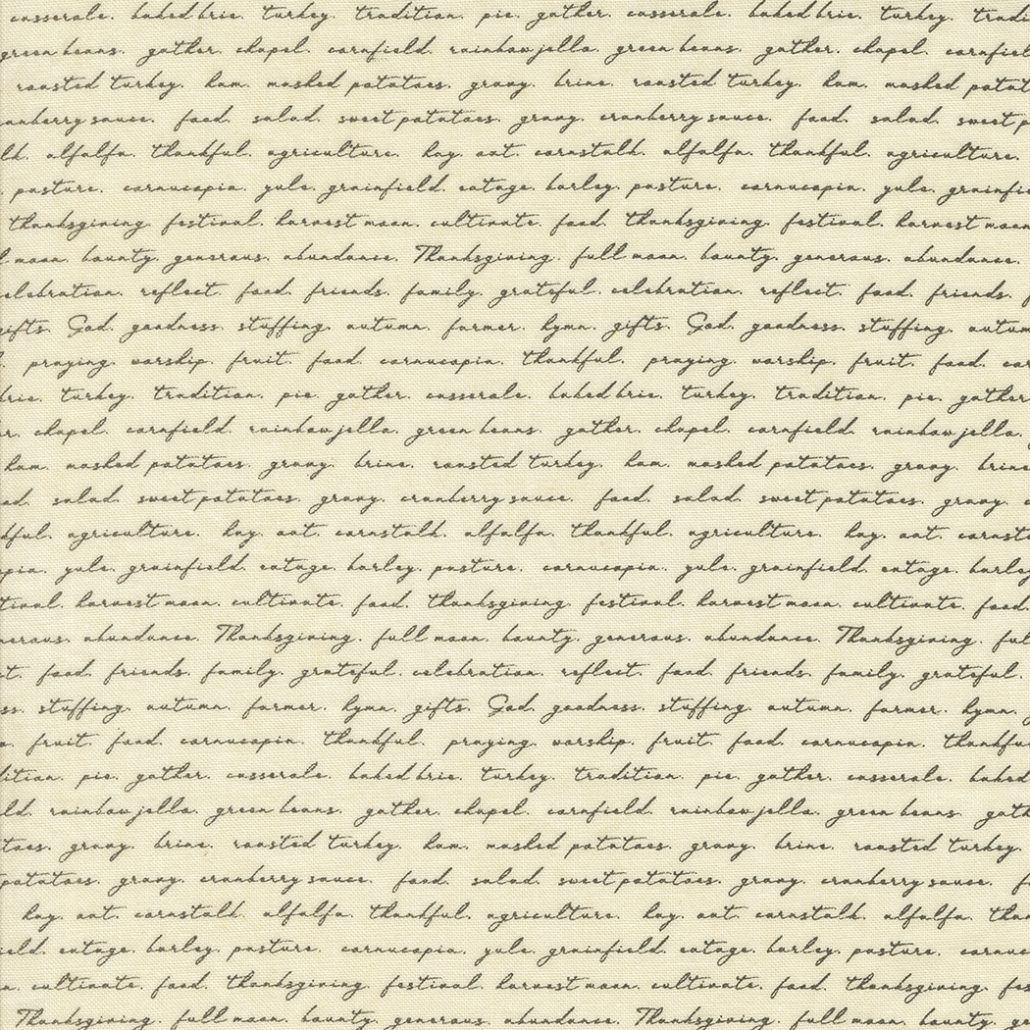 casserole. baked brie. turkey. tradition. pie. gather. casserole. baked brie. turkey. tradi
green beans. gather. chapel. cornfield. rainbow jello. green beans. gather. chapel. cornfiel
roasted turkey. ham. mashed potatoes. gravy. brine. roasted turkey. ham. mashed potat
anberry sauce. food. salad. sweet potatoes. gravy. cranberry sauce. food. salad. sweet p
lk. alfalfa. thankful. agriculture. hay. oat. cornstalk. alfalfa. thankful. agriculture.
. pasture. cornucopia. yule. grainfield. barley. pasture. cornucopia. yule. grainfie
thanksgiving. festival. harvest moon. cultivate. food. thanksgiving. festival. harvest moon
l moon. bounty. generous. abundance. Thanksgiving. full moon. bounty. generous. abundance.
elebration. reflect. food. friends. family. grateful. celebration. reflect. food. friends. f
gifts. God. goodness. stuffing. autumn. farmer. hymn. gifts. God. goodness. stuffing. autum
. praying. worship. fruit. food. cornucopia. thankful. praying. worship. fruit. food. cor
brie. turkey. tradition. pie. gather. casserole. baked brie. turkey. tradition. pie. gather
r. chapel. cornfield. rainbow jello. green beans. gather. chapel. cornfield. rainbow jello.
ham. mashed potatoes. gravy. brine. roasted turkey. ham. mashed potatoes. gravy. brine
od. salad. sweet potatoes. gravy. cranberry sauce. food. salad. sweet potatoes. gravy. c
kful. agriculture. hay. oat. cornstalk. alfalfa. thankful. agriculture. hay. oat. cornsta
opia. yule. grainfield. barley. pasture. cornucopia. yule. grainfield. barley
tival. harvest moon. cultivate. food. thanksgiving. festival. harvest moon. cultivate. food.
nerous. abundance. Thanksgiving. full moon. bounty. generous. abundance. Thanksgiving. ful
t. food. friends. family. grateful. celebration. reflect. food. friends. family. grateful.
ss. stuffing. autumn. farmer. hymn. gifts. God. goodness. stuffing. autumn. farmer. hymn. g
p. fruit. food. cornucopia. thankful. praying. worship. fruit. food. cornucopia. thankfu
dition. pie. gather. casserole. baked brie. turkey. tradition. pie. gather. casserole. baked
ld. rainbow jello. green beans. gather. chapel. cornfield. rainbow jello. green beans. gath
toes. gravy. brine. roasted turkey. ham. mashed potatoes. gravy. brine. roasted turkey.
potatoes. gravy. cranberry sauce. food. salad. sweet potatoes. gravy. cranberry sauce. f
hay. oat. cornstalk. alfalfa. thankful. agriculture. hay. oat. cornstalk. alfalfa. than
ield. barley. pasture. cornucopia. yule. grainfield. barley. pasture. cornuc
n. cultivate. food. thanksgiving. festival. harvest moon. cultivate. food. thanksgiving. fes
Thanksgiving. full moon. bounty. generous. abundance. Thanksgiving. full moon. bounty. ge